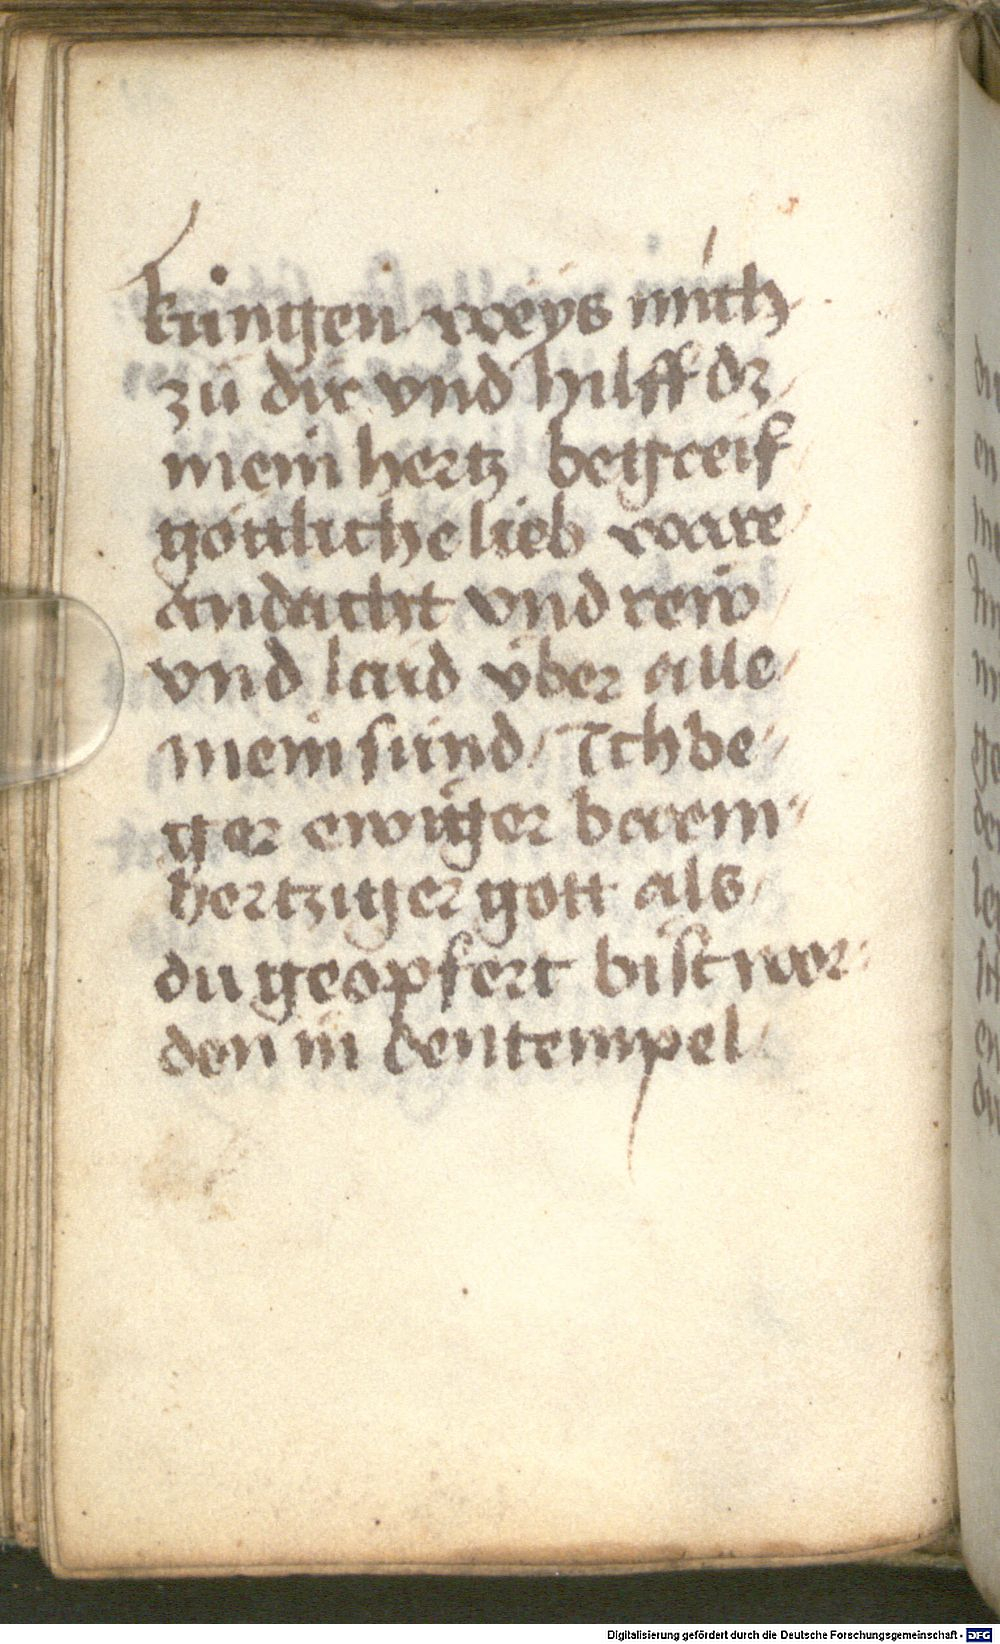 kúngen weys mich
zu dir vnd hilff dz
mein hertz begreif
göttliche lieb ware
andacht vnd rew
vnd laid vber alle
mein sünd / Ich be-
ger ewiger barm-
hertziger gott als
du geopfert bist wor-
den in den tempel
Digitalisierung gefördert durch die Deutsche Forschungsgemeinschaft - DFG